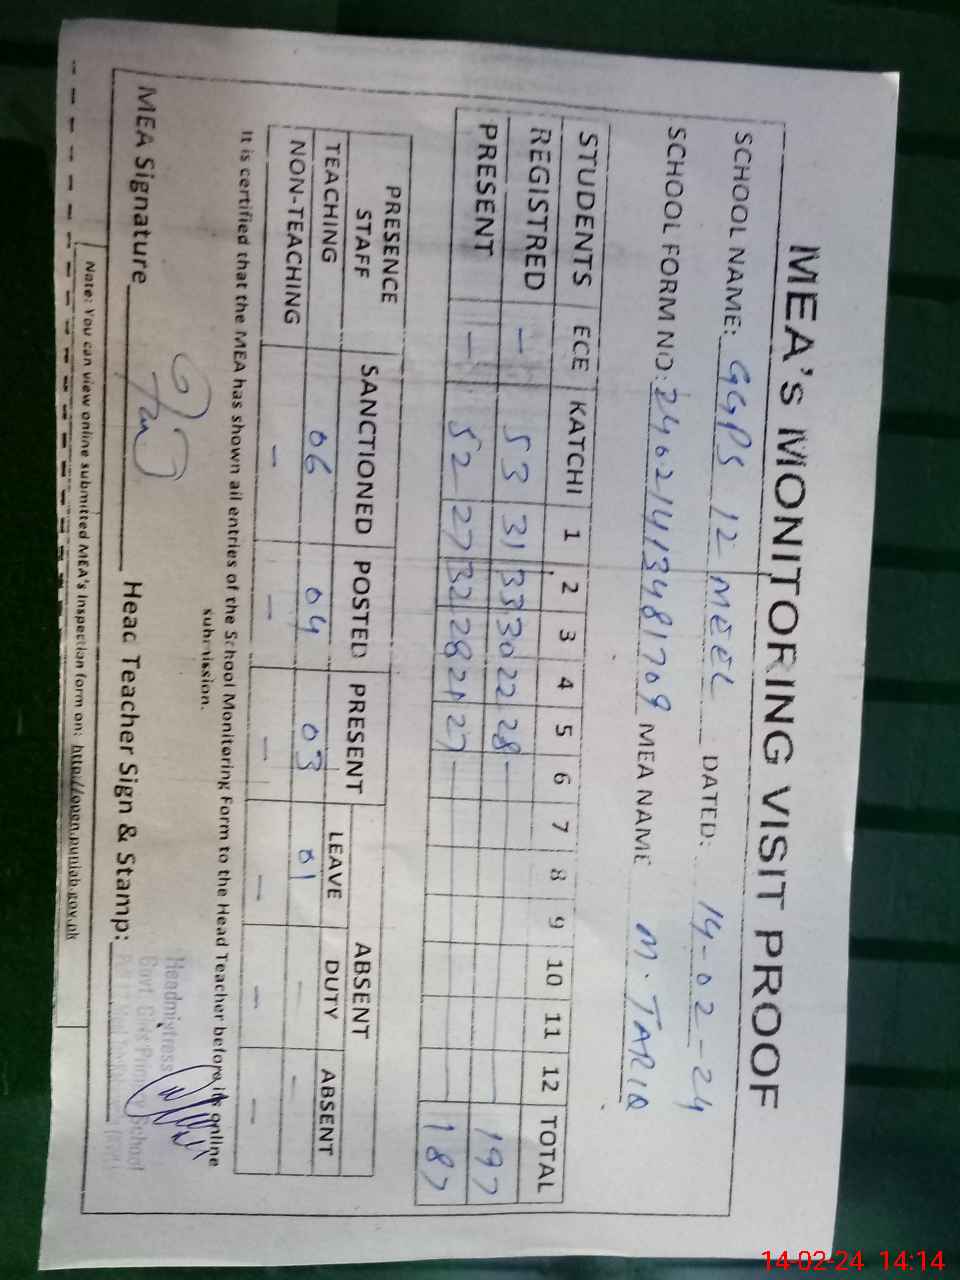 MEA's MONITORING VISIT PROOF
SCHOOL NAME: GGPS 12 MEEL DATED: 14-02-24
SCHOOL FORM NO: 24021413481709 MEA NAME M. TARIQ
STUDENTS ECE KATCHI 1 2 3 4 5 6 7 8 9 10 11 12 TOTAL
REGISTRED — 53 31 33 30 22 28 — 197
PRESENT — 52 27 32 28 21 27 — 187
PRESENCE STAFF SANCTIONED POSTED PRESENT ABSENT
LEAVE DUTY ABSENT
TEACHING 06 04 03 01 — —
NON-TEACHING — — — — — —
It is certified that the MEA has shown all entries of the School Monitoring Form to the Head Teacher before its online
submission.
MEA Signature Head Teacher Sign & Stamp:
Headmistress
Govt. Girls Primary School
Note: You can view online submitted MEA's Inspection form on: http://open.punjab.gov.pk
14-02-24 14:14